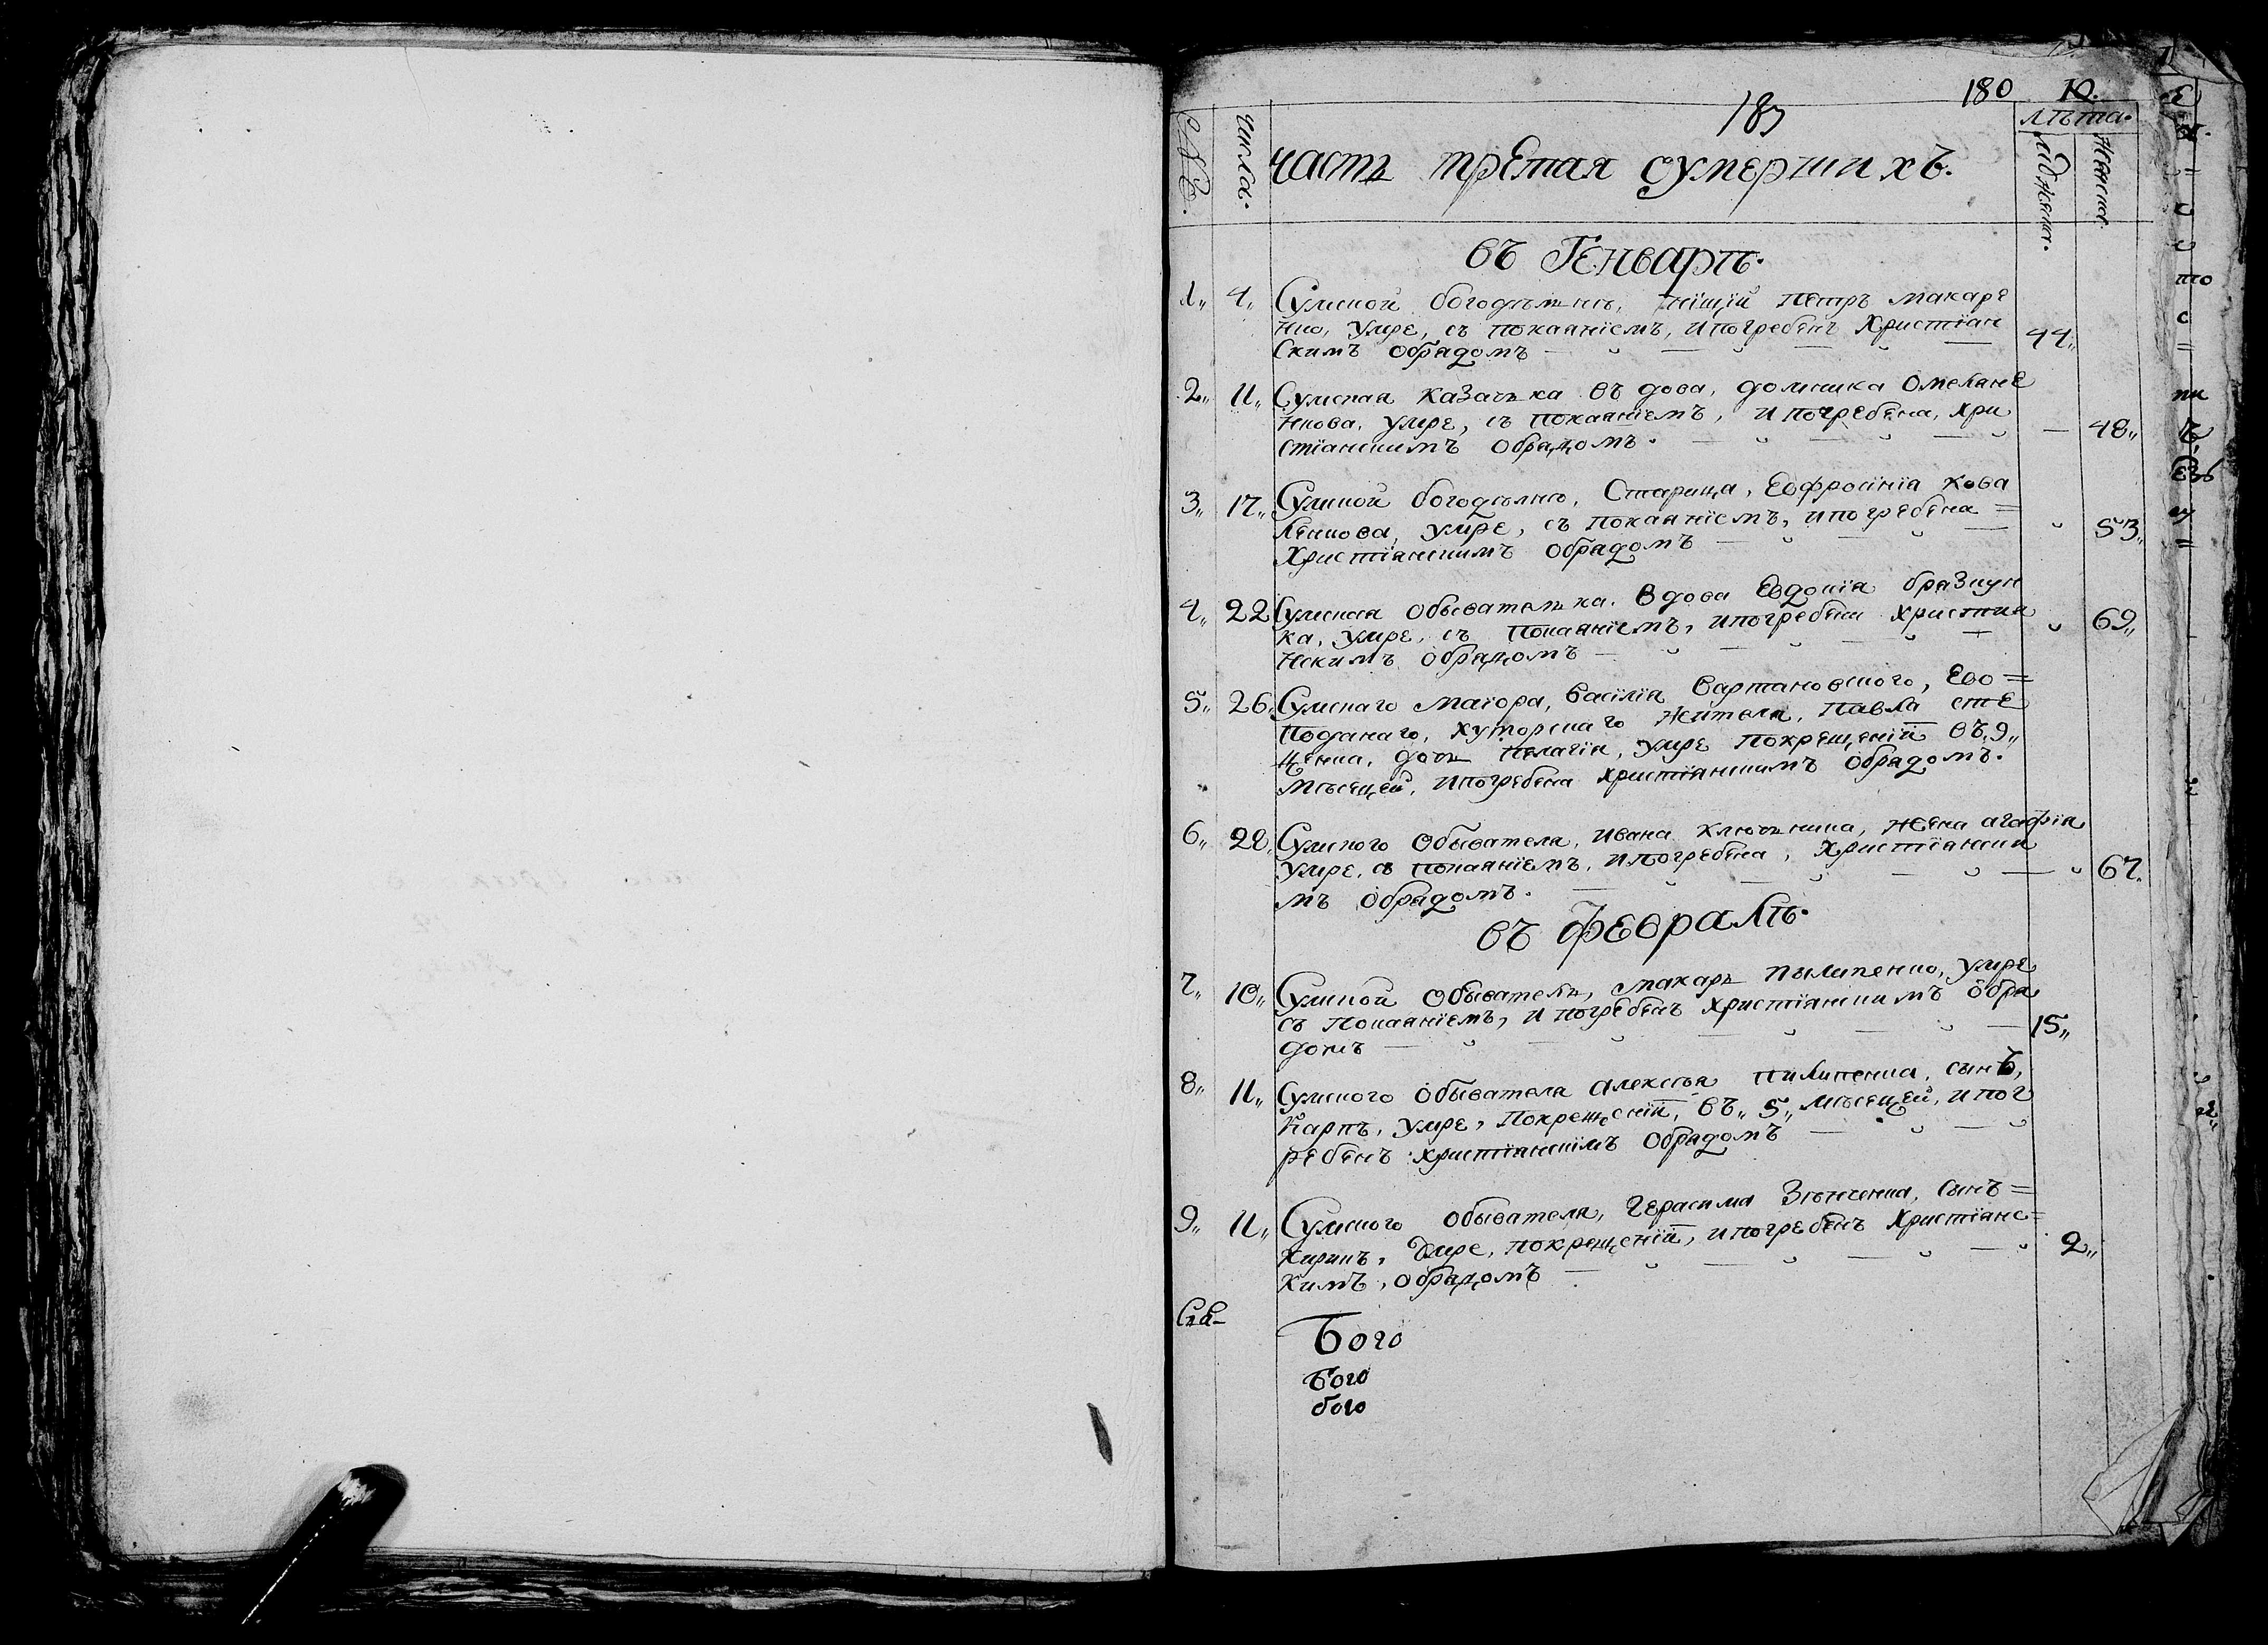 180 10.
183
числа. часть третая оумершихъ. лѣта.
мужеска. женска.
въ Генварѣ.
1„ 4„ Сумской богодѣлнѣ, нїщїй петръ макаре
нко, умре, съ покаянїемъ, ипогребенъ Христїан
скимъ обрядомъ 44„
2„ 11„ Сумская казачька въдова, домника Омеляне
нкова, умре, съ покаянїемъ, ипогребена, хри
стїанскимъ обрядомъ. 48„
3„ 17„ Сумской богодѣлнѣ, Старица, Евфросїнїа кова
ленкова, умре, съ покаянїемъ, ипогребена =
Христїанскимъ обрядомъ 53„
4„ 22 Сумская обывателька. вдова Евдокїа бразнун
ка, умре, съ покаянїемъ, ипогребена христиа
нскимъ обрядомъ 69„
5„ 26„ Сумскаго маїора, васїлїя Вартановского, Ево =
поданаго, хуторскаго жителя, павла сте
ценка, дочь пелагїя, умре покрещенїй въ„9„
мѣсецей, ипогребена христїанскимъ обрядомъ.
6„ 28„ Сумского обывателя, ивана ключника, жена агафїя
умре, съ покаянїемъ, ипогребена, христїански
мъ обрядомъ. 67.
въ февралѣ.
7„ 10„ Сумской обыватель, макаръ пылипенко, умре
съ покаянїемъ, и погребенъ христїанскимъ обря
домъ 15„
8„ 11„ Сумского обывателя алексѣя пилипенка, сынъ,
карпъ, умре, покрещенїй, въ„ 5„ мѣсецей, ипог
ребенъ христїанскїмъ обрядомъ
9„ 11„ Сумского обывателя, герасима Зѣнченка, сынъ =
кирикъ, умре, покрещенїй, ипогребенъ христїанс=
кимъ, обрядомъ 2„
Бого
Бого
бого